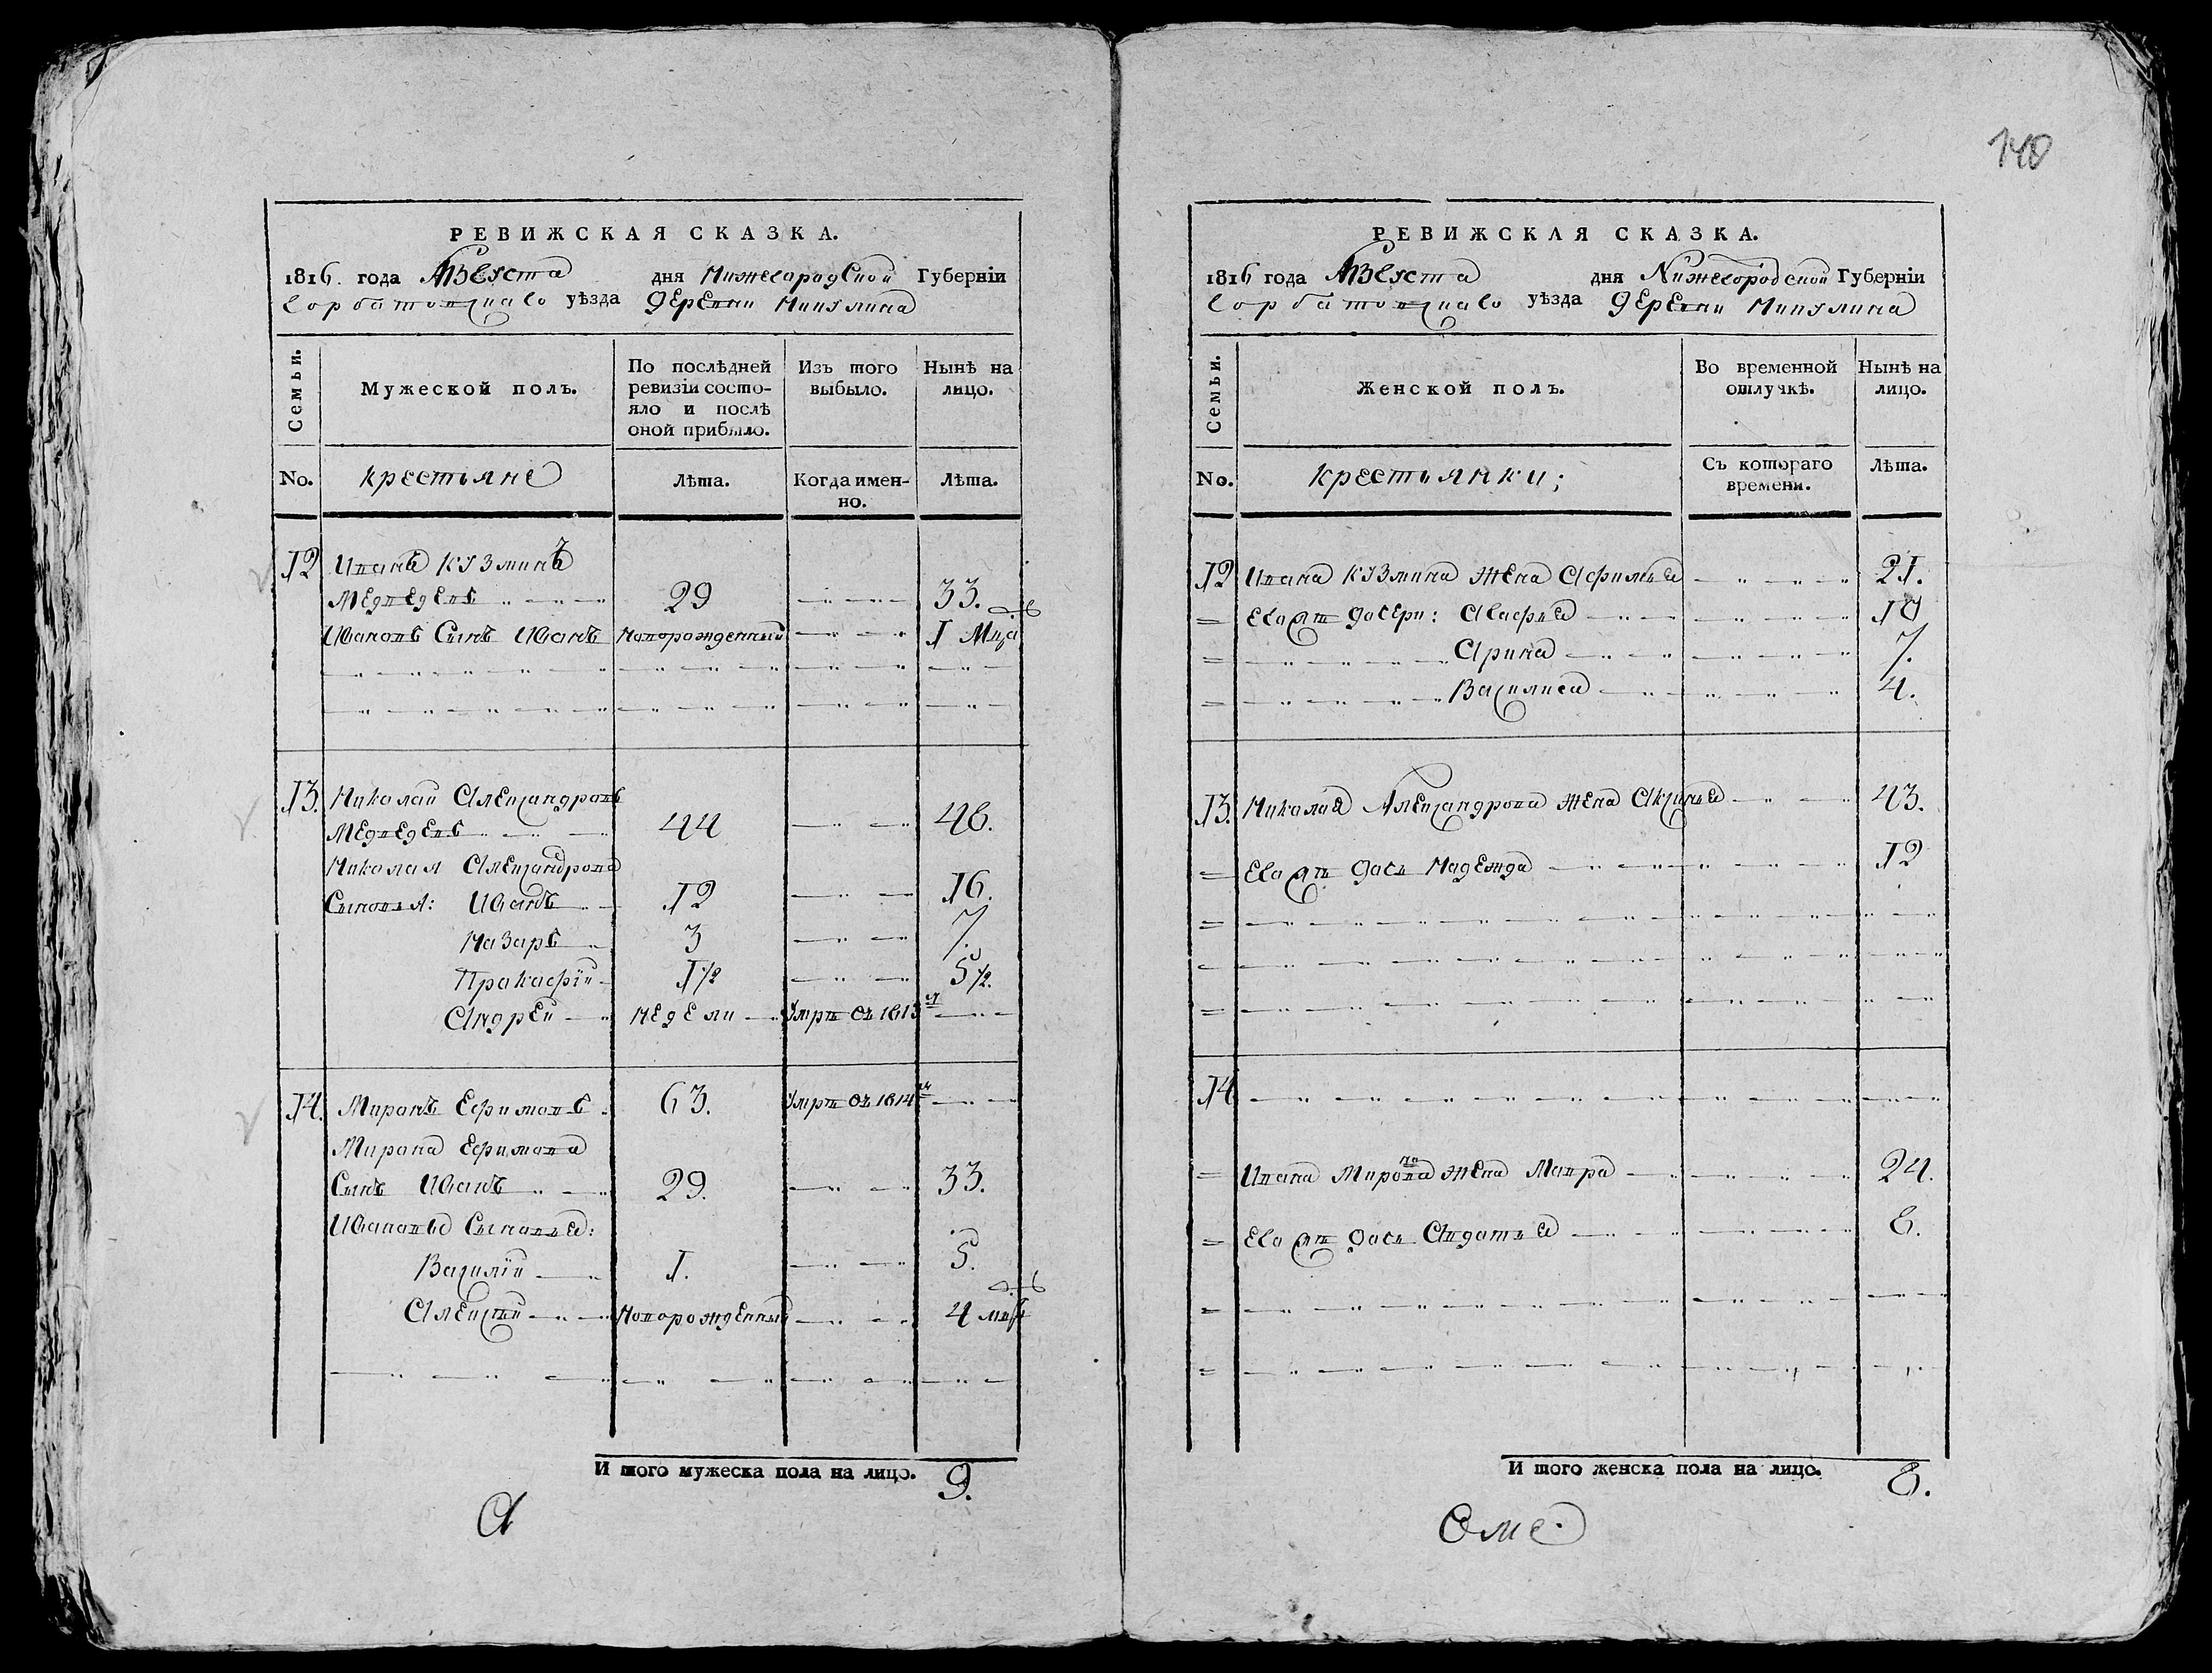 140
РЕВИЖСКАЯ СКАЗКА.
1816. года Августа дня Нижегородской Губерніи
Горбатовскаго уѣзда деревни Микулина
Семьи.
Мужеской полъ.
По послѣдней ревизіи состояло и послѣ оной прибыло.
Изъ того выбыло.
Нынѣ на лицо.
No. крестьяне Лѣта. Когда именно. Лѣта.
12 Иванъ Кузминъ
Медведевъ 29 33.
Ивановъ Сынъ Иванъ новорожденный 1 Мца
13. Николай Александровъ
Медведевъ 44 48.
Николая Александрова
Сыновья: Иванъ 12 16.
Назаръ 3 7.
Пракафій 1 1/2 5 1/2.
Андрей недели Умре въ 1813
14. Миронъ Ефимовъ 63. Умре въ 1814
Мирона Ефимова
Сынъ Иванъ 29. 33.
Ивановы Сыновья:
Василій 1. 5.
Алексѣй Новорожденный 4
И того мужеска пола на лицо. 9.
РЕВИЖСКАЯ СКАЗКА.
1816 года Августа дня Нижегородской Губерніи
Горбатовскаго уѣзда деревни Микулина
Семьи.
Женской полъ.
Во временной отлучкѣ.
Нынѣ на лицо.
No. крестьянки; Съ котораго времени. Лѣта.
12 Ивана Кузмина жена Афимья 21.
Его дочери: Агафья 10
Арина 7.
Василиса 4.
13. Николая Александрова жена Аксинья 43.
Его дочь Надежда 12
14
Ивана Мирона жена Мавра 24.
Его дочь Авдотья 8.
И того женска пола на лицо. 8.